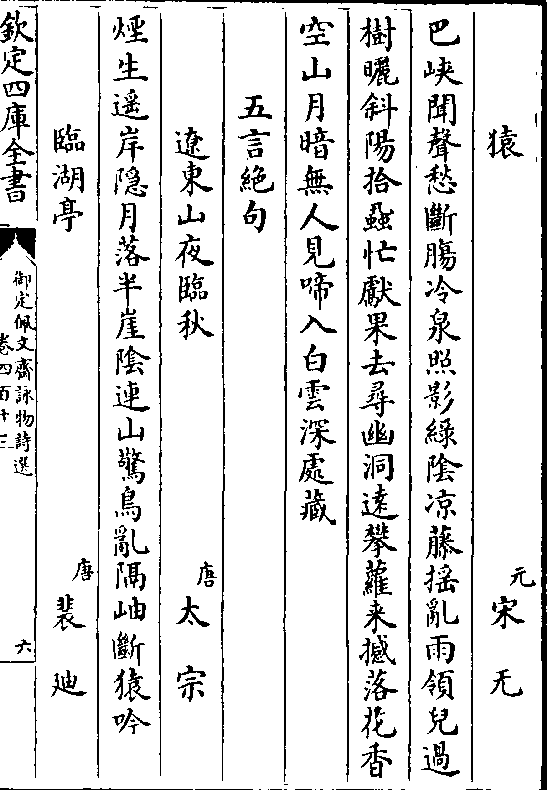 猿　元宋无
巴峽聞聲愁斷腸冷泉照影綠陰凉藤揺亂雨領兒過
樹曬斜陽拾蝨忙獻果去尋幽洞逺攀蘿来撼落花香
空山月暗無人見啼入白雲深處藏
五言絶句
遼東山夜臨秋　唐太宗
煙生遥岸隠月落半崖陰連山驚鳥亂隔岫斷猿吟
臨湖亭　唐裴迪
欽定四庫全書
御定佩文齋詠物詩選
卷四百十三
六